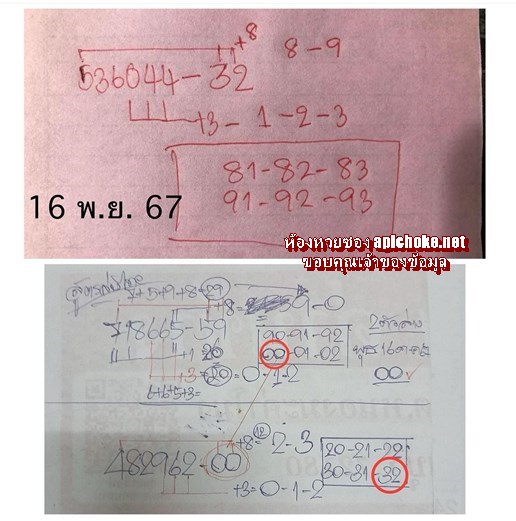 +8 8-9
536044-32
+3- 1-2-3
81-82-83
91-92-93
16 พ.ย. 67
ห้องหวยซอง apichoke.net
ขอบคุณเจ้าของข้อมูล
7+5+9+8=29
+8= 9-0
718665-59
90-91-92
00-01-02
00
+3=20=0-1-2
6+6+5+3=
+8=12 2-3
482962-00
20-21-22
30-31-32
+3=0-1-2